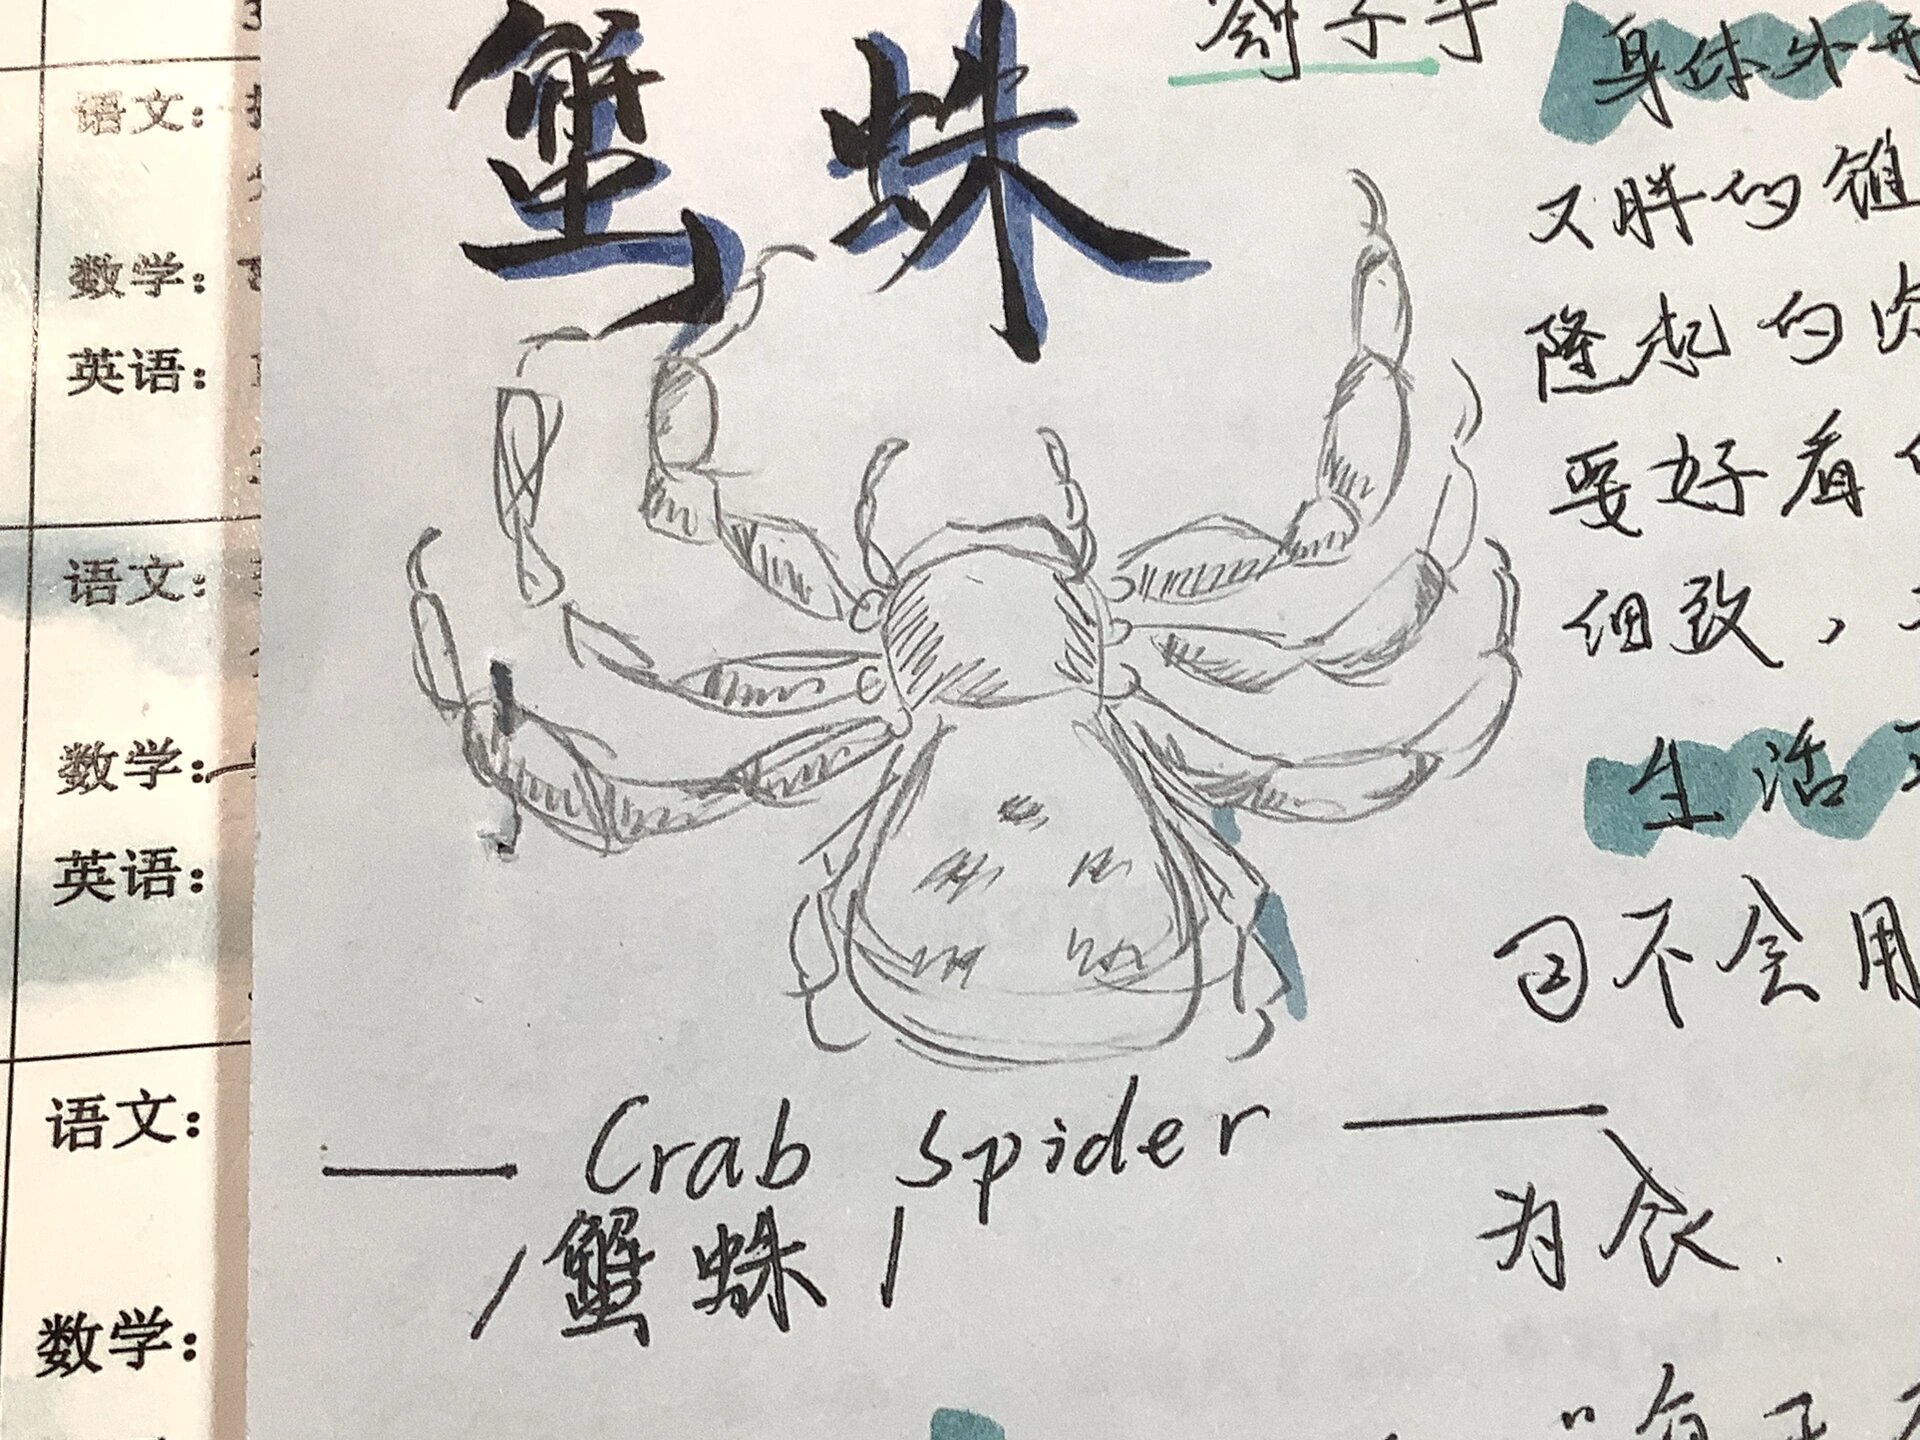 蟹蛛
刽子手
身体外形
又胖的锥
隆起的
要好看
细致，
生活
日不会用
Crab Spider
为食
蟹蛛
语文：
数学：
英语：
语文：
数学：
英语：
语文：
数学：